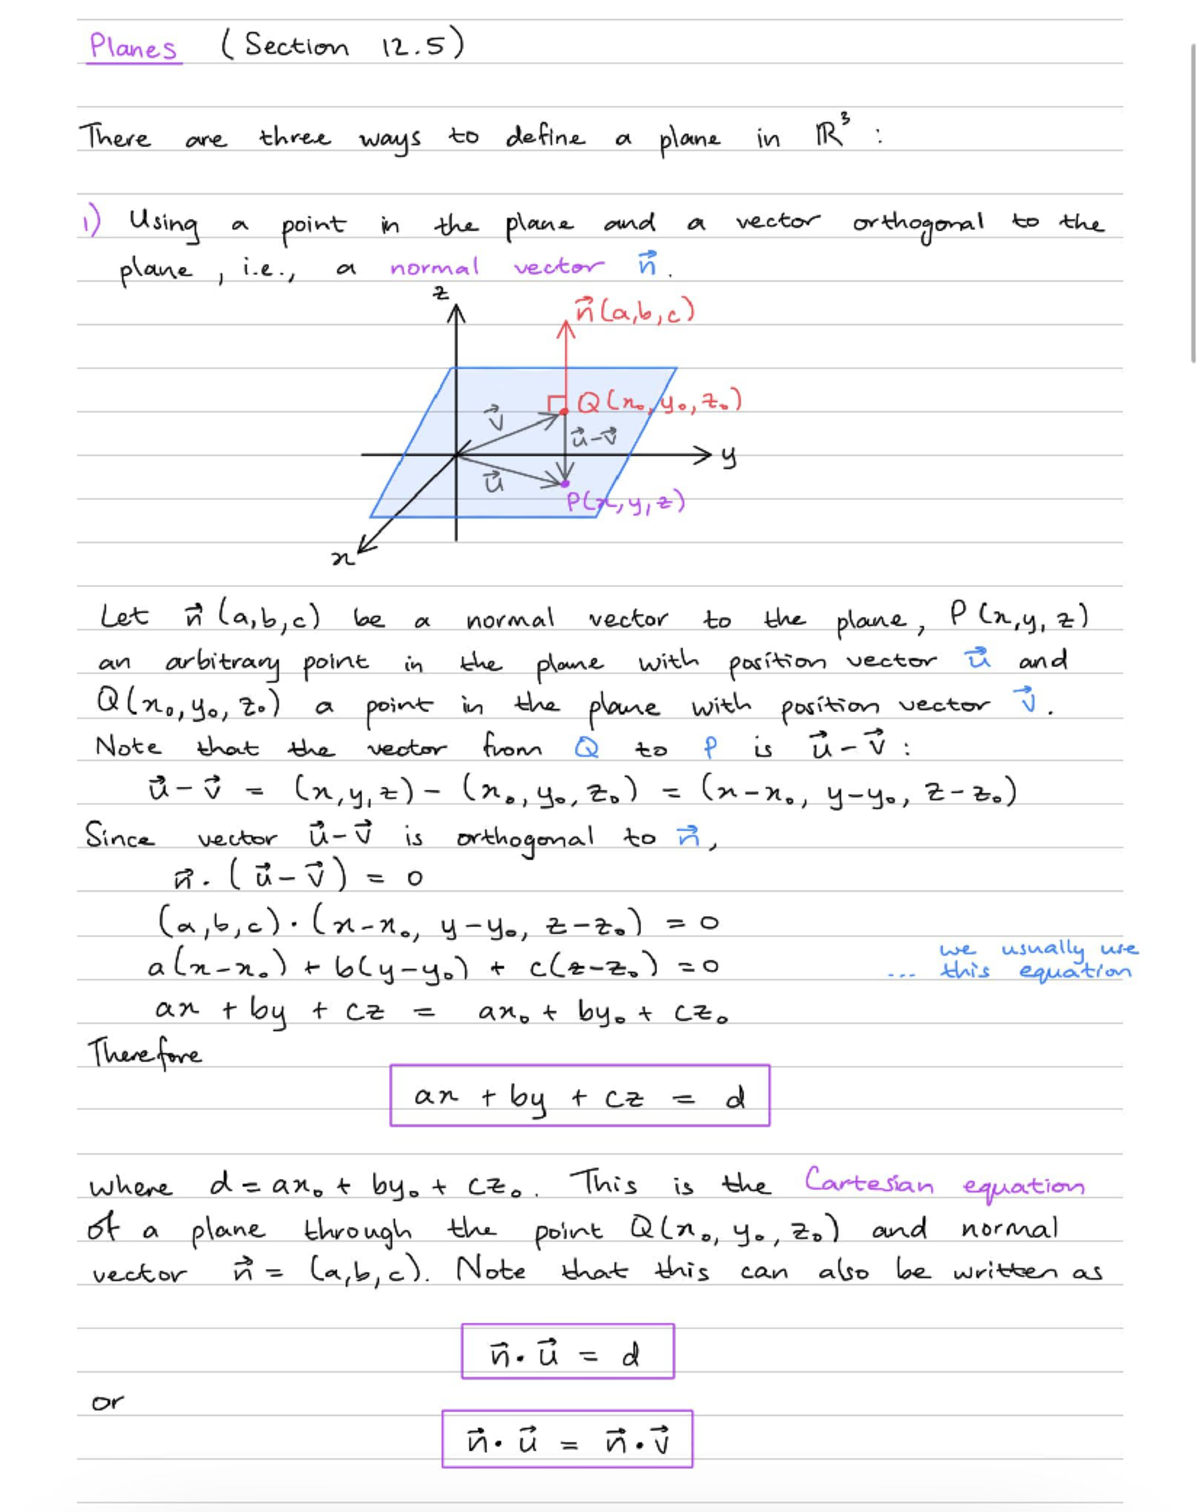 Planes (Section 12.5)
There are three ways to define a plane in ℝ³ :
1) Using a point in the plane and a vector orthogonal to the
plane, i.e., a normal vector n⃗.
z
n⃗(a,b,c)
Q(x₀,y₀,z₀)
v⃗
u⃗-v⃗
y
u⃗
P(x,y,z)
x
Let n⃗(a,b,c) be a normal vector to the plane, P(x,y,z)
an arbitrary point in the plane with position vector u⃗ and
Q(x₀,y₀,z₀) a point in the plane with position vector v⃗.
Note that the vector from Q to P is u⃗-v⃗ :
u⃗-v⃗ = (x,y,z) - (x₀,y₀,z₀) = (x-x₀, y-y₀, z-z₀)
Since vector u⃗-v⃗ is orthogonal to n⃗,
n⃗·(u⃗-v⃗) = 0
(a,b,c)·(x-x₀, y-y₀, z-z₀) = 0
a(x-x₀) + b(y-y₀) + c(z-z₀) = 0 ... we usually use this equation
ax + by + cz = ax₀ + by₀ + cz₀
Therefore
ax + by + cz = d
where d = ax₀ + by₀ + cz₀. This is the Cartesian equation
of a plane through the point Q(x₀,y₀,z₀) and normal
vector n⃗ = (a,b,c). Note that this can also be written as
n⃗·u⃗ = d
or
n⃗·u⃗ = n⃗·v⃗